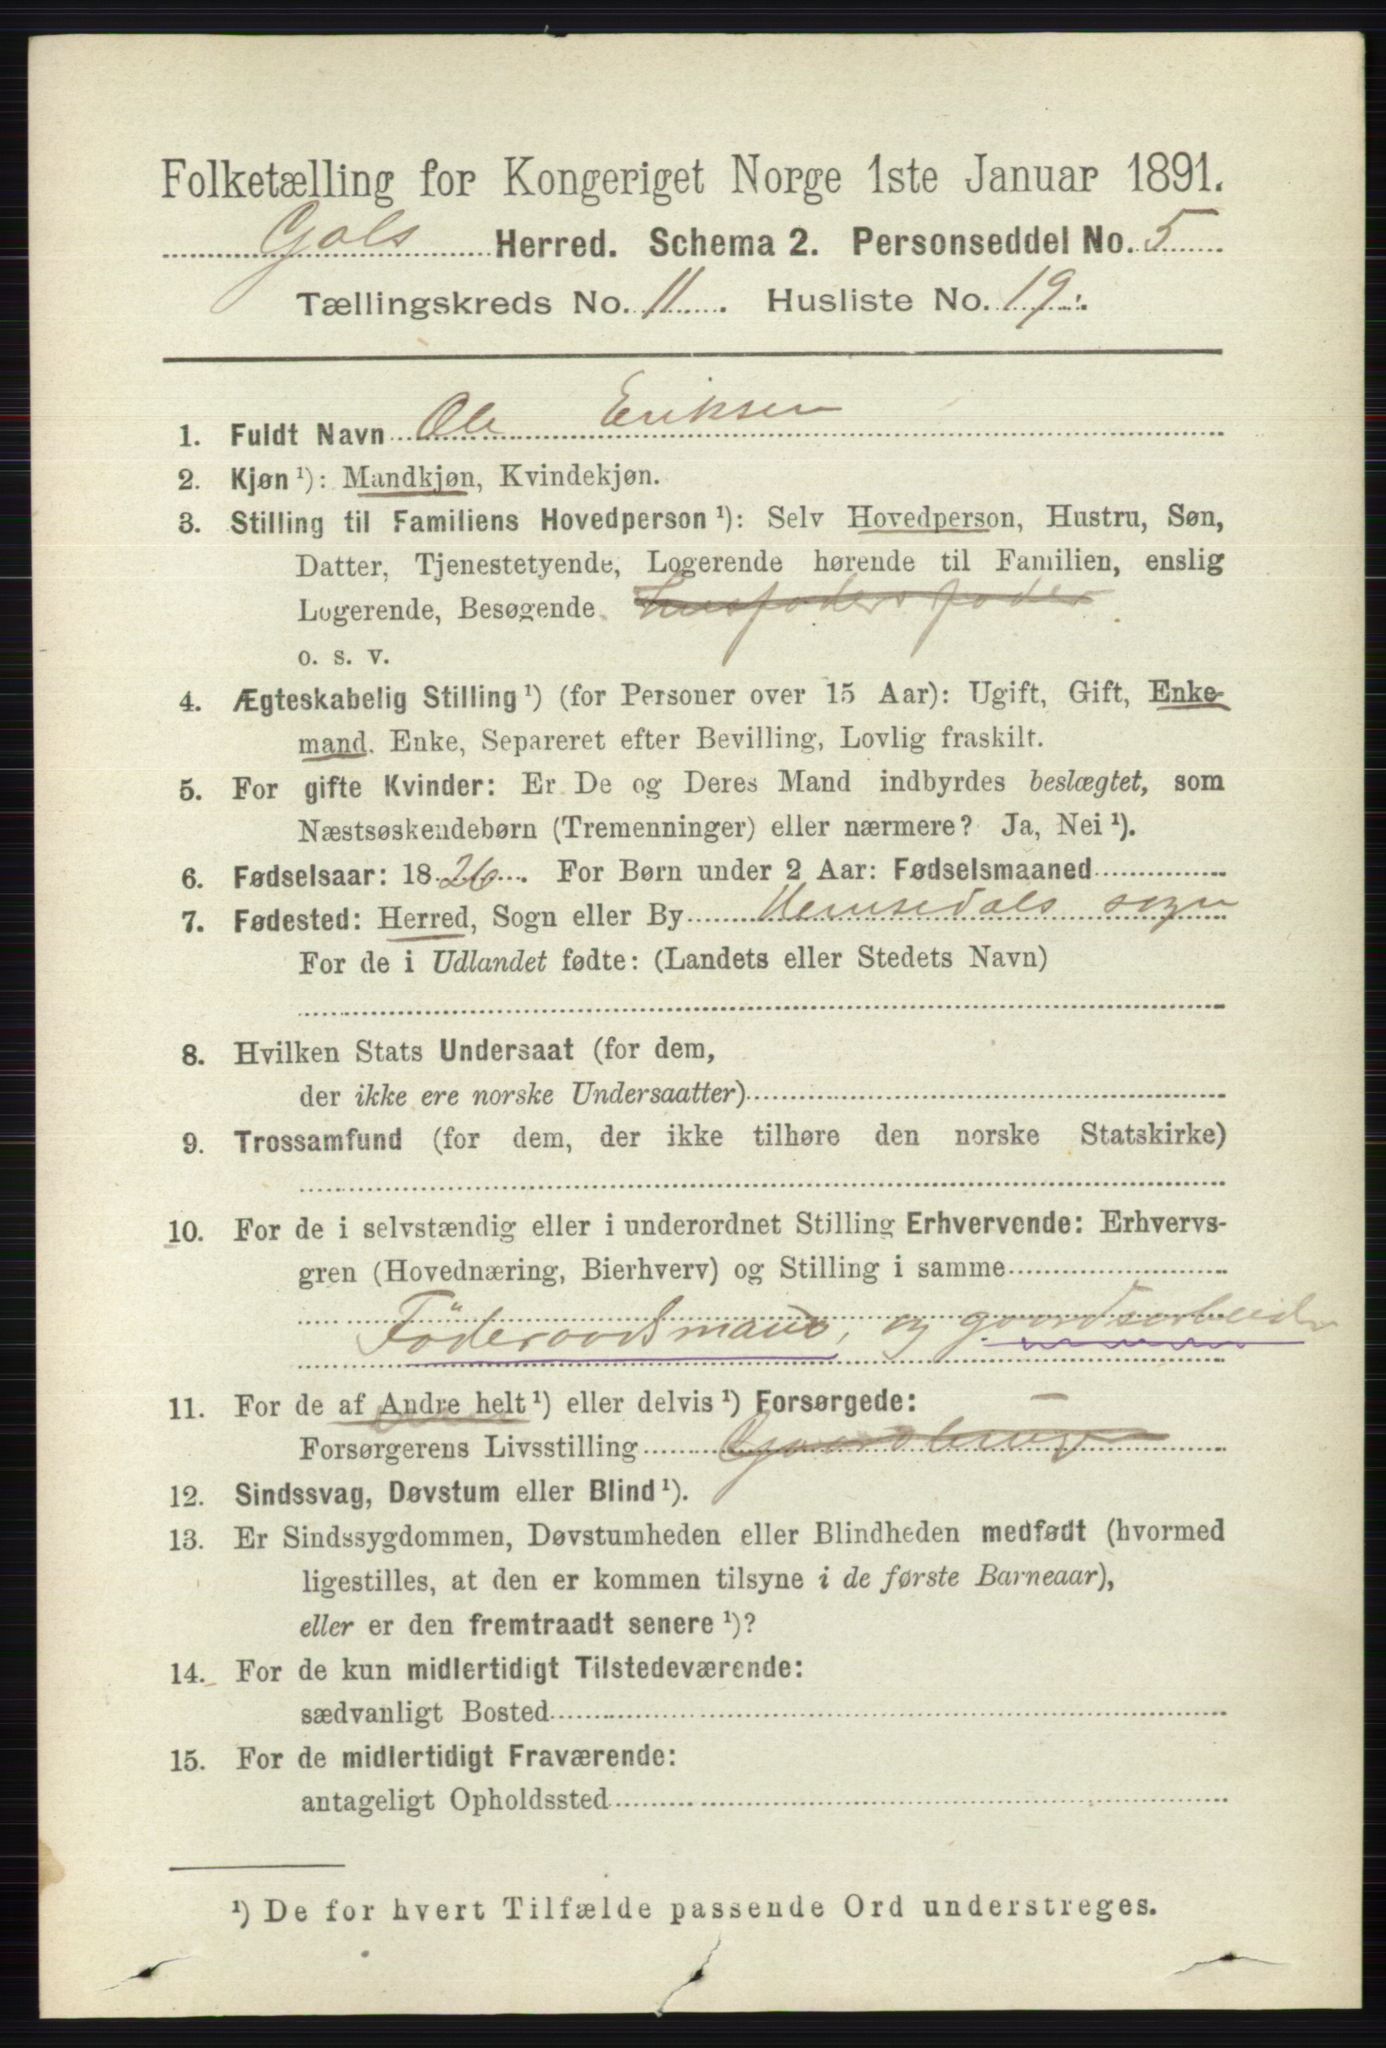 Folketælling for Kongeriget Norge 1ste Januar 1891.
Gols Herred. Schema 2. Personseddel No. 5
Tællingskreds No. 11. Husliste No. 19.
1. Fuldt Navn Ole Eriksen
2. Kjøn ¹): Mandkjøn, Kvindekjøn.
3. Stilling til Familiens Hovedperson ¹): Selv Hovedperson, Hustru, Søn,
Datter, Tjenestetyende, Logerende hørende til Familien, enslig
Logerende, Besøgende Husfoders foder
o. s. v.
4. Ægteskabelig Stilling ¹) (for Personer over 15 Aar): Ugift, Gift, Enke-
mand. Enke, Separeret efter Bevilling, Lovlig fraskilt.
5. For gifte Kvinder: Er De og Deres Mand indbyrdes beslægtet, som
Næstsøskendebørn (Tremenninger) eller nærmere? Ja, Nei ¹).
6. Fødselsaar: 1826. For Børn under 2 Aar: Fødselsmaaned
7. Fødested: Herred, Sogn eller By Hemsedals sogn
For de i Udlandet fødte: (Landets eller Stedets Navn)
8. Hvilken Stats Undersaat (for dem,
der ikke ere norske Undersaatter)
9. Trossamfund (for dem, der ikke tilhøre den norske Statskirke)
10. For de i selvstændig eller i underordnet Stilling Erhvervende: Erhvervs-
gren (Hovednæring, Bierhverv) og Stilling i samme
Föderaadsmand, og gaardsarbeider
11. For de af Andre helt ¹) eller delvis ¹) Forsørgede:
Forsørgerens Livsstilling Gaardbruger
12. Sindssvag, Døvstum eller Blind ¹).
13. Er Sindssygdommen, Døvstumheden eller Blindheden medfødt (hvormed
ligestilles, at den er kommen tilsyne i de første Barneaar),
eller er den fremtraadt senere ¹)?
14. For de kun midlertidigt Tilstedeværende:
sædvanligt Bosted
15. For de midlertidigt Fraværende:
antageligt Opholdssted
¹) De for hvert Tilfælde passende Ord understreges.